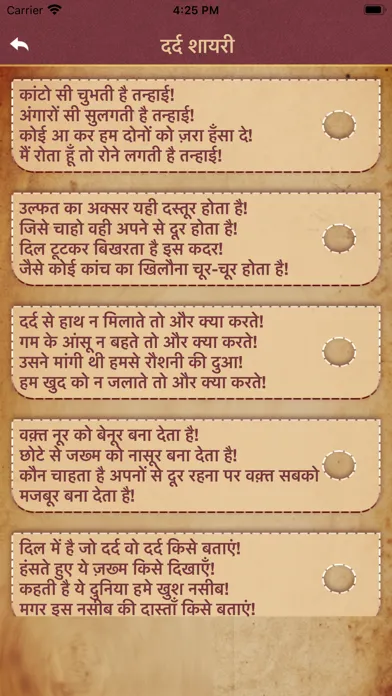 Carrier 4:25 PM
दर्द शायरी
कांटो सी चुभती है तन्हाई!
अंगारों सी सुलगती है तन्हाई!
कोई आ कर हम दोनों को ज़रा हँसा दे!
मैं रोता हूँ तो रोने लगती है तन्हाई!
उल्फत का अक्सर यही दस्तूर होता है!
जिसे चाहो वही अपने से दूर होता है!
दिल टूटकर बिखरता है इस कदर!
जैसे कोई कांच का खिलौना चूर-चूर होता है!
दर्द से हाथ न मिलाते तो और क्या करते!
गम के आंसू न बहते तो और क्या करते!
उसने मांगी थी हमसे रौशनी की दुआ!
हम खुद को न जलाते तो और क्या करते!
वक़्त नूर को बेनूर बना देता है!
छोटे से जख्म को नासूर बना देता है!
कौन चाहता है अपनों से दूर रहना पर वक़्त सबको
मजबूर बना देता है!
दिल में है जो दर्द वो दर्द किसे बताएं!
हंसते हुए ये ज़ख्म किसे दिखाएँ!
कहती है ये दुनिया हमे खुश नसीब!
मगर इस नसीब की दास्ताँ किसे बताएं!